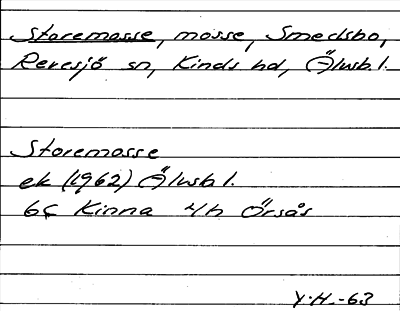 Storemosse, mosse, Smedsbo,
Revesjö sn, Kinds hd, Älvsb.l.
Storemosse
ek (1962) Älvsb l.
6c Kinna 4h Örsås
Y.H.-63